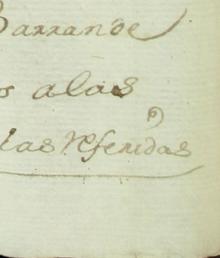 Barrande
s alas
las referidas